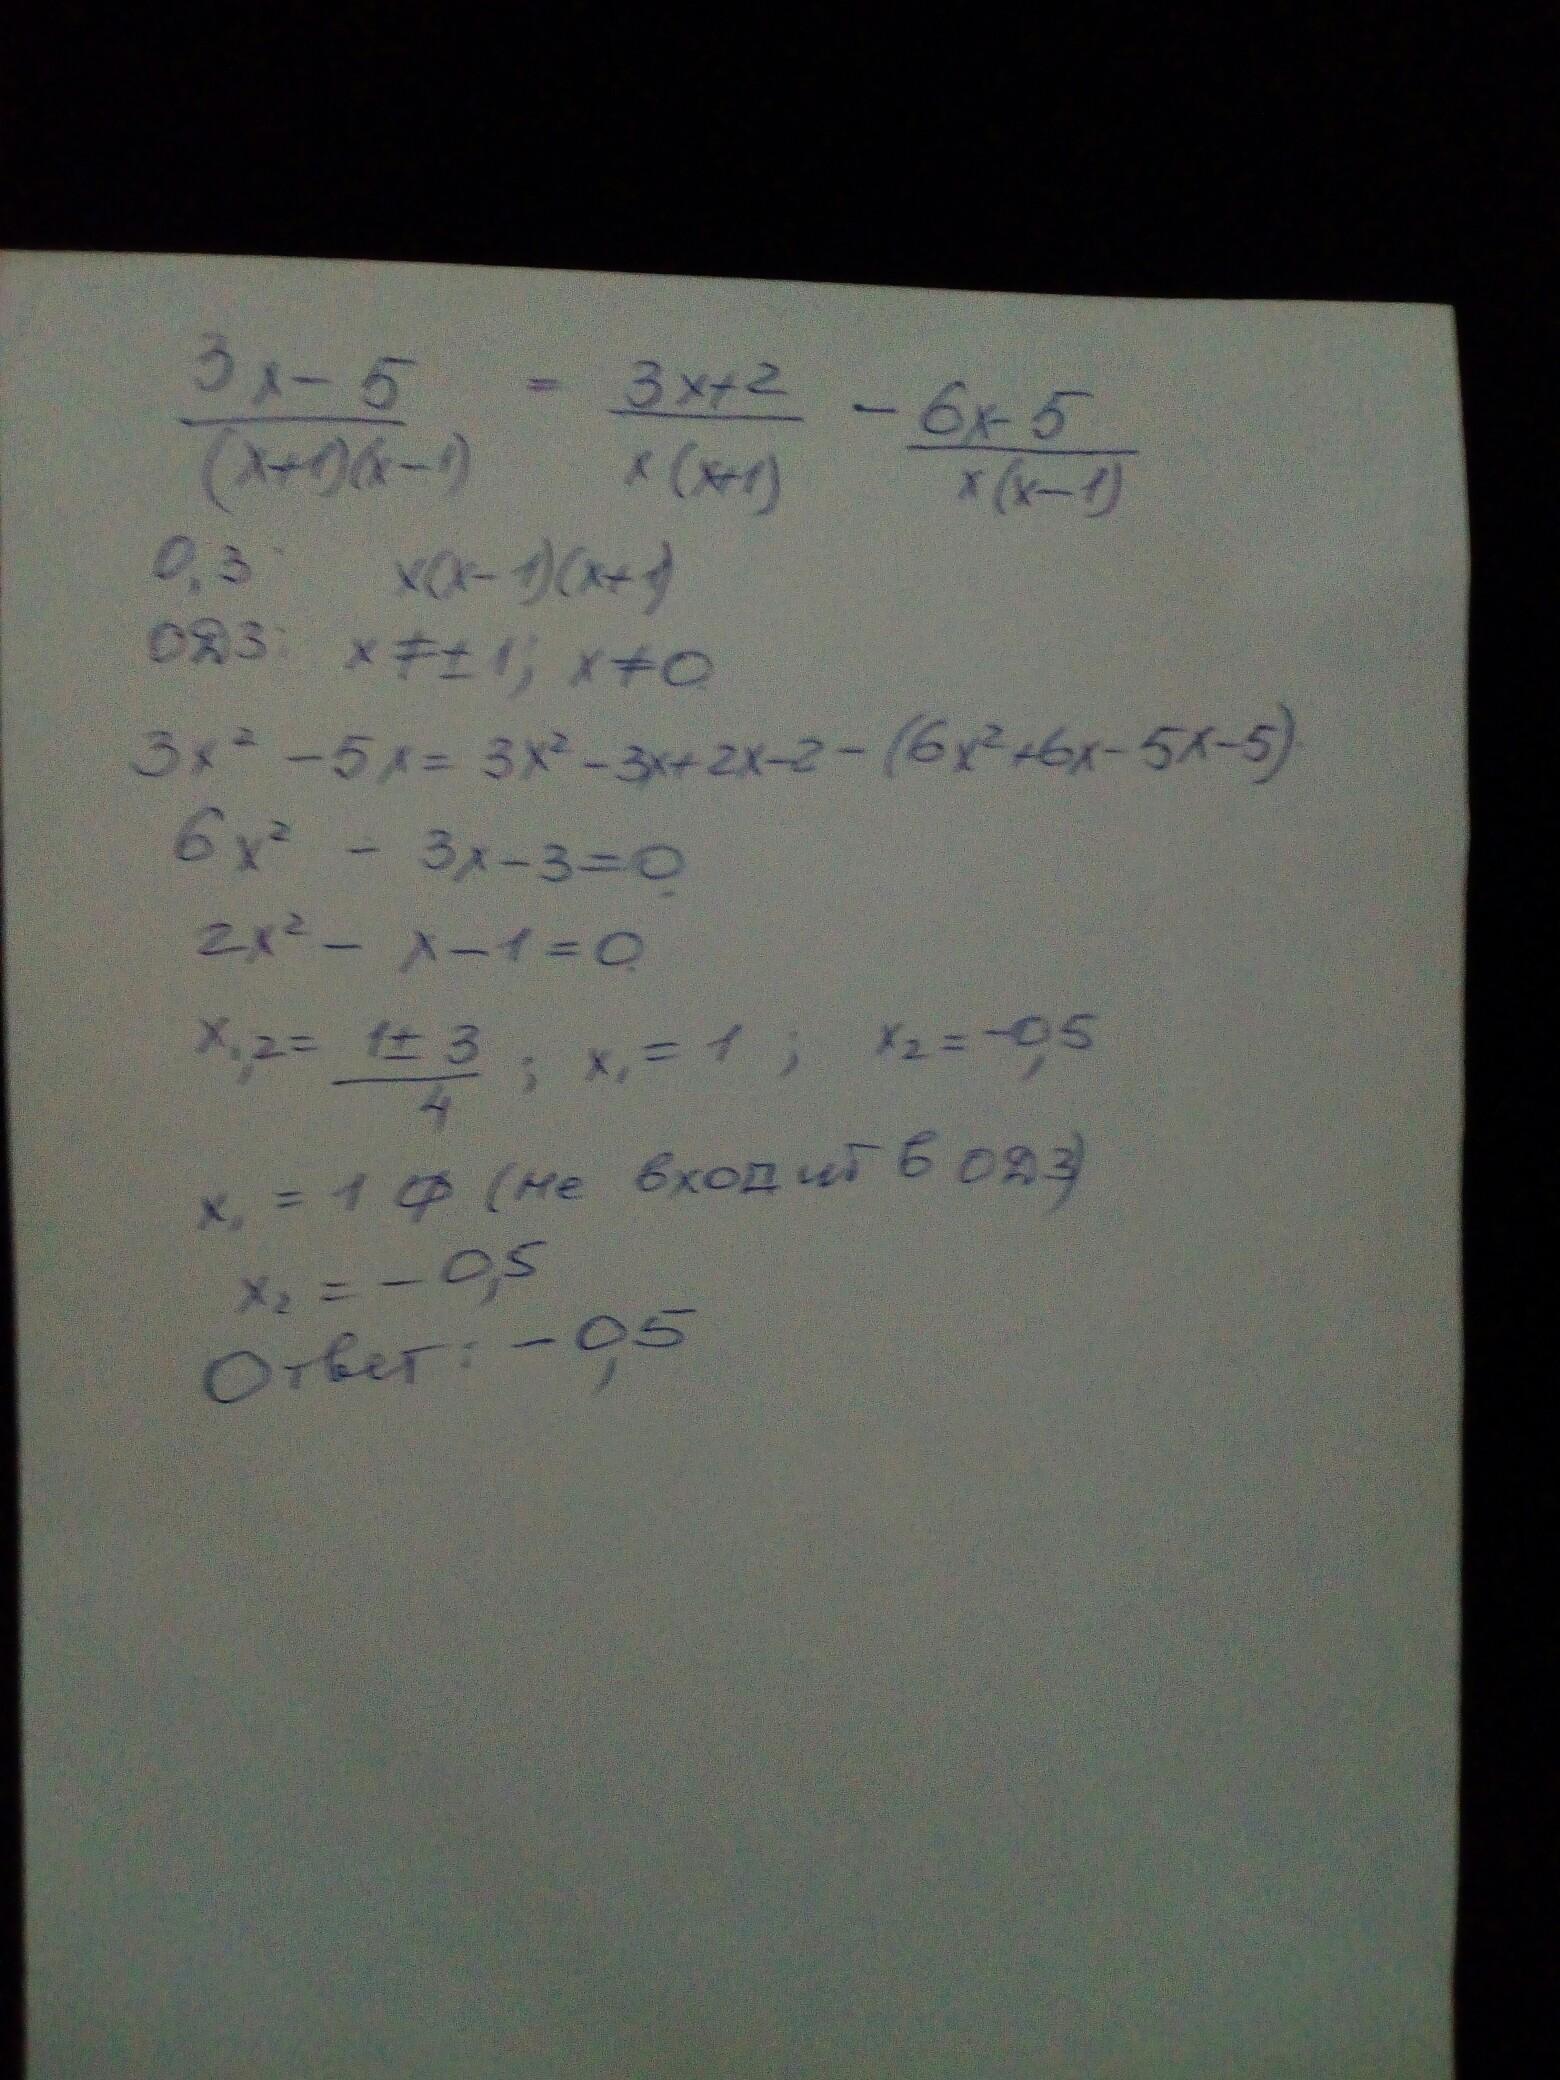 (3x-5)/((x+1)(x-1)) = (3x+2)/(x(x+1)) - (6x-5)/(x(x-1))
О,З: x(x-1)(x+1)
ОДЗ: x≠±1; x≠0
3x² -5x = 3x²-3x+2x-2-(6x²+6x-5x-5)
6x² - 3x-3=0
2x² - x-1=0
x₁,₂ = (1±3)/4 ; x₁ = 1 ; x₂ = -0,5
x₁ = 1 ∅ (не входит в ОДЗ)
x₂ = -0,5
Ответ: -0,5